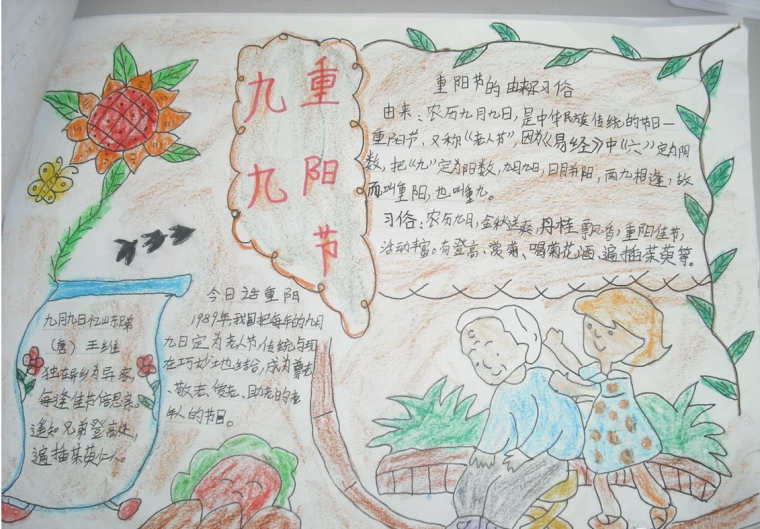 九九
重阳节
重阳节的由来习俗
由来:农历九月九日,是中华民族传统的节日—
重阳节,又称“老人节”,因为《易经》中“六”定为阴
数,把“九”定为阳数,九月九日,日月并阳,两九相逢,故
而叫重阳,也叫重九。
习俗:农历九日,金秋送爽,丹桂飘香,重阳佳节,
活动丰富。有登高、赏菊、喝菊花酒、遍插茱萸等。
今日话重阳
1989年我国把每年的九月
九日定为老人节,传统与现
在巧妙地结合,成为尊老
、敬老、爱老、助老的老
年人的节日。
九月九日忆山东兄弟
(唐) 王维
独在异乡为异客,
每逢佳节倍思亲。
遥知兄弟登高处,
遍插茱萸少一人。